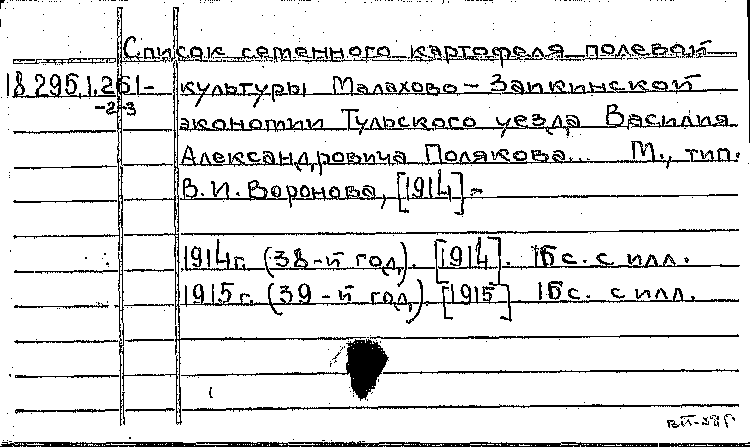 Список семенного картофеля полевой
18.295.1.261- культуры Малахово-Запкинской
-2-3
экономии Тульского уезда Василия
Александровича Полякова... М., тип.
В.И. Воронова, [1914]-
1914г. (38-й год). [1914]. 16с. с илл.
1915г. (39-й год). [1915] 16с. с илл.